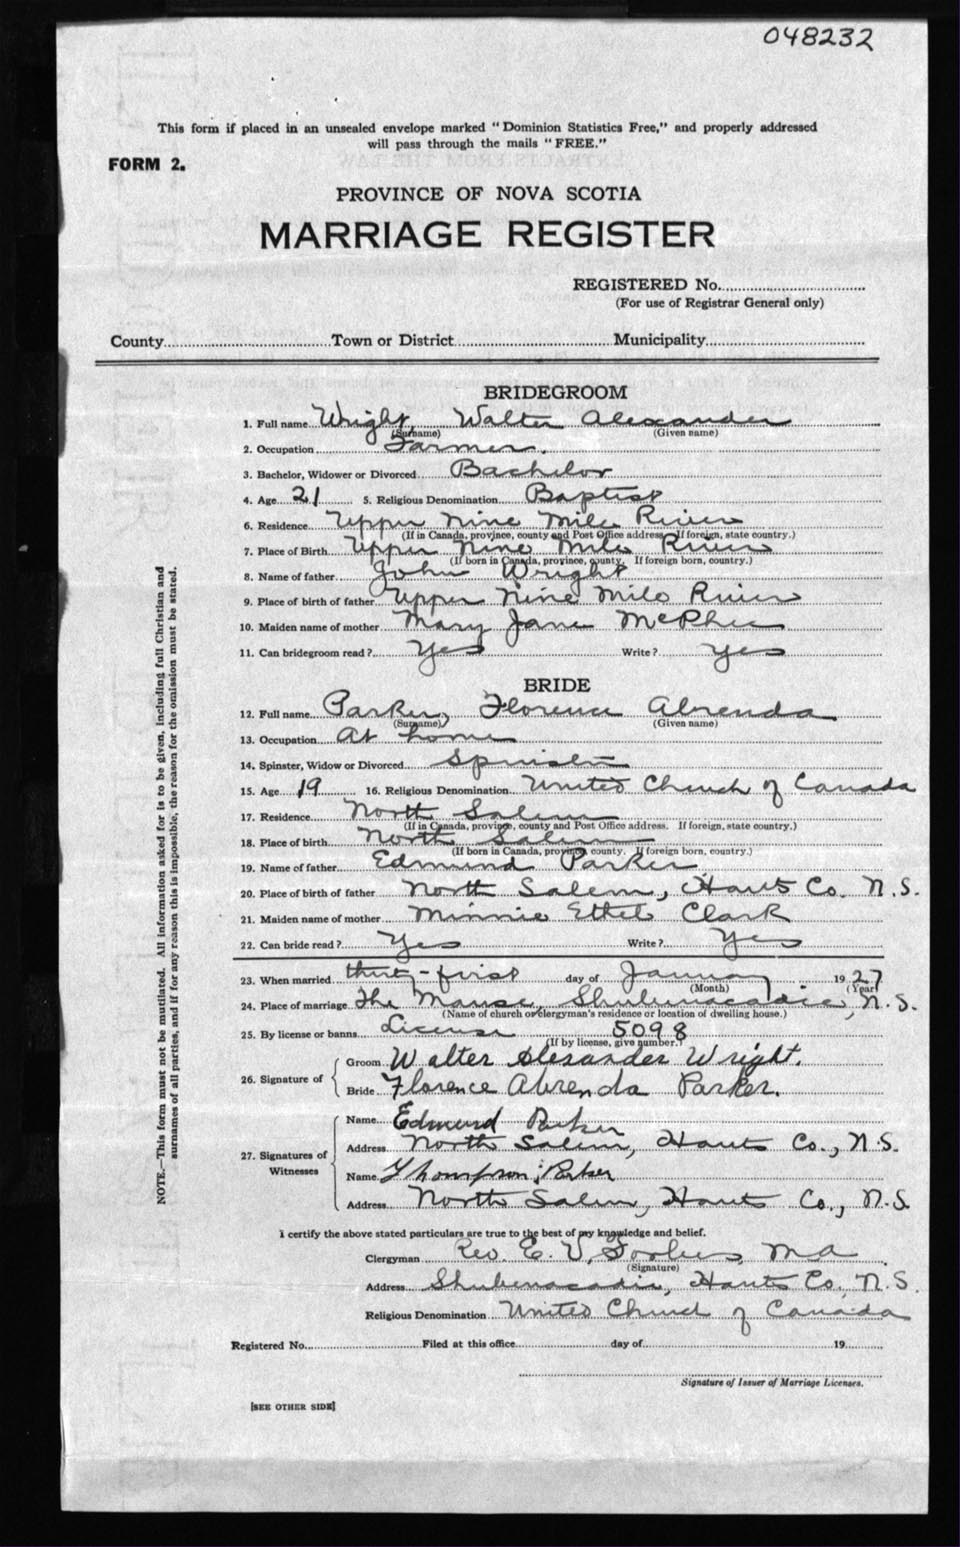 048232
This form if placed in an unsealed envelope marked "Dominion Statistics Free," and properly addressed
will pass through the mails "FREE."
FORM 2.
PROVINCE OF NOVA SCOTIA
MARRIAGE REGISTER
REGISTERED No.
(For use of Registrar General only)
County Town or District Municipality
BRIDEGROOM
1. Full name Wright Walter Alexander
(Surname) (Given name)
2. Occupation Farmer.
3. Bachelor, Widower or Divorced Bachelor
4. Age 21 5. Religious Denomination Baptist
6. Residence Upper Nine Mile River
(If in Canada, province, county and Post Office address. If foreign, state country.)
7. Place of Birth Upper Nine Mile River
(If born in Canada, province, county. If foreign born, country.)
8. Name of father John Wright
9. Place of birth of father Upper Nine Mile River
10. Maiden name of mother Mary Jane McPhee
11. Can bridegroom read? Yes Write? Yes
BRIDE
12. Full name Parker, Florence Abrenda
(Surname) (Given name)
13. Occupation At home
14. Spinster, Widow or Divorced Spinster
15. Age 19 16. Religious Denomination United Church of Canada
17. Residence North Salem
(If in Canada, province, county and Post Office address. If foreign, state country.)
18. Place of birth North Salem
(If born in Canada, province, county. If foreign born, country.)
19. Name of father Edmund Parker
20. Place of birth of father North Salem, Hants Co. N.S.
21. Maiden name of mother Minnie Ethel Clark
22. Can bride read? Yes Write? Yes
23. When married thirty-first day of January 1927
(Month) (Year)
24. Place of marriage The Manse, Shubenacadie, N.S.
(Name of church or clergyman's residence or location of dwelling house.)
25. By license or banns License 5098
(If by license, give number.)
26. Signature of Groom Walter Alexander Wright.
Bride Florence Abrenda Parker.
27. Signatures of Witnesses Name Edmund Parker
Address North Salem, Hants Co., N.S.
Name Thompson Parker
Address North Salem, Hants Co., N.S
I certify the above stated particulars are true to the best of my knowledge and belief.
Clergyman Rev. E. V. Forbes, M A
(Signature)
Address Shubenacadie, Hants Co. N.S.
Religious Denomination United Church of Canada
Registered No. Filed at this office day of 19
Signature of Issuer of Marriage Licenses.
[SEE OTHER SIDE]
NOTE.—This form must not be mutilated. All information asked for is to be given, including full Christian and
surnames of all parties, and if for any reason this is impossible, the reason for the omission must be stated.